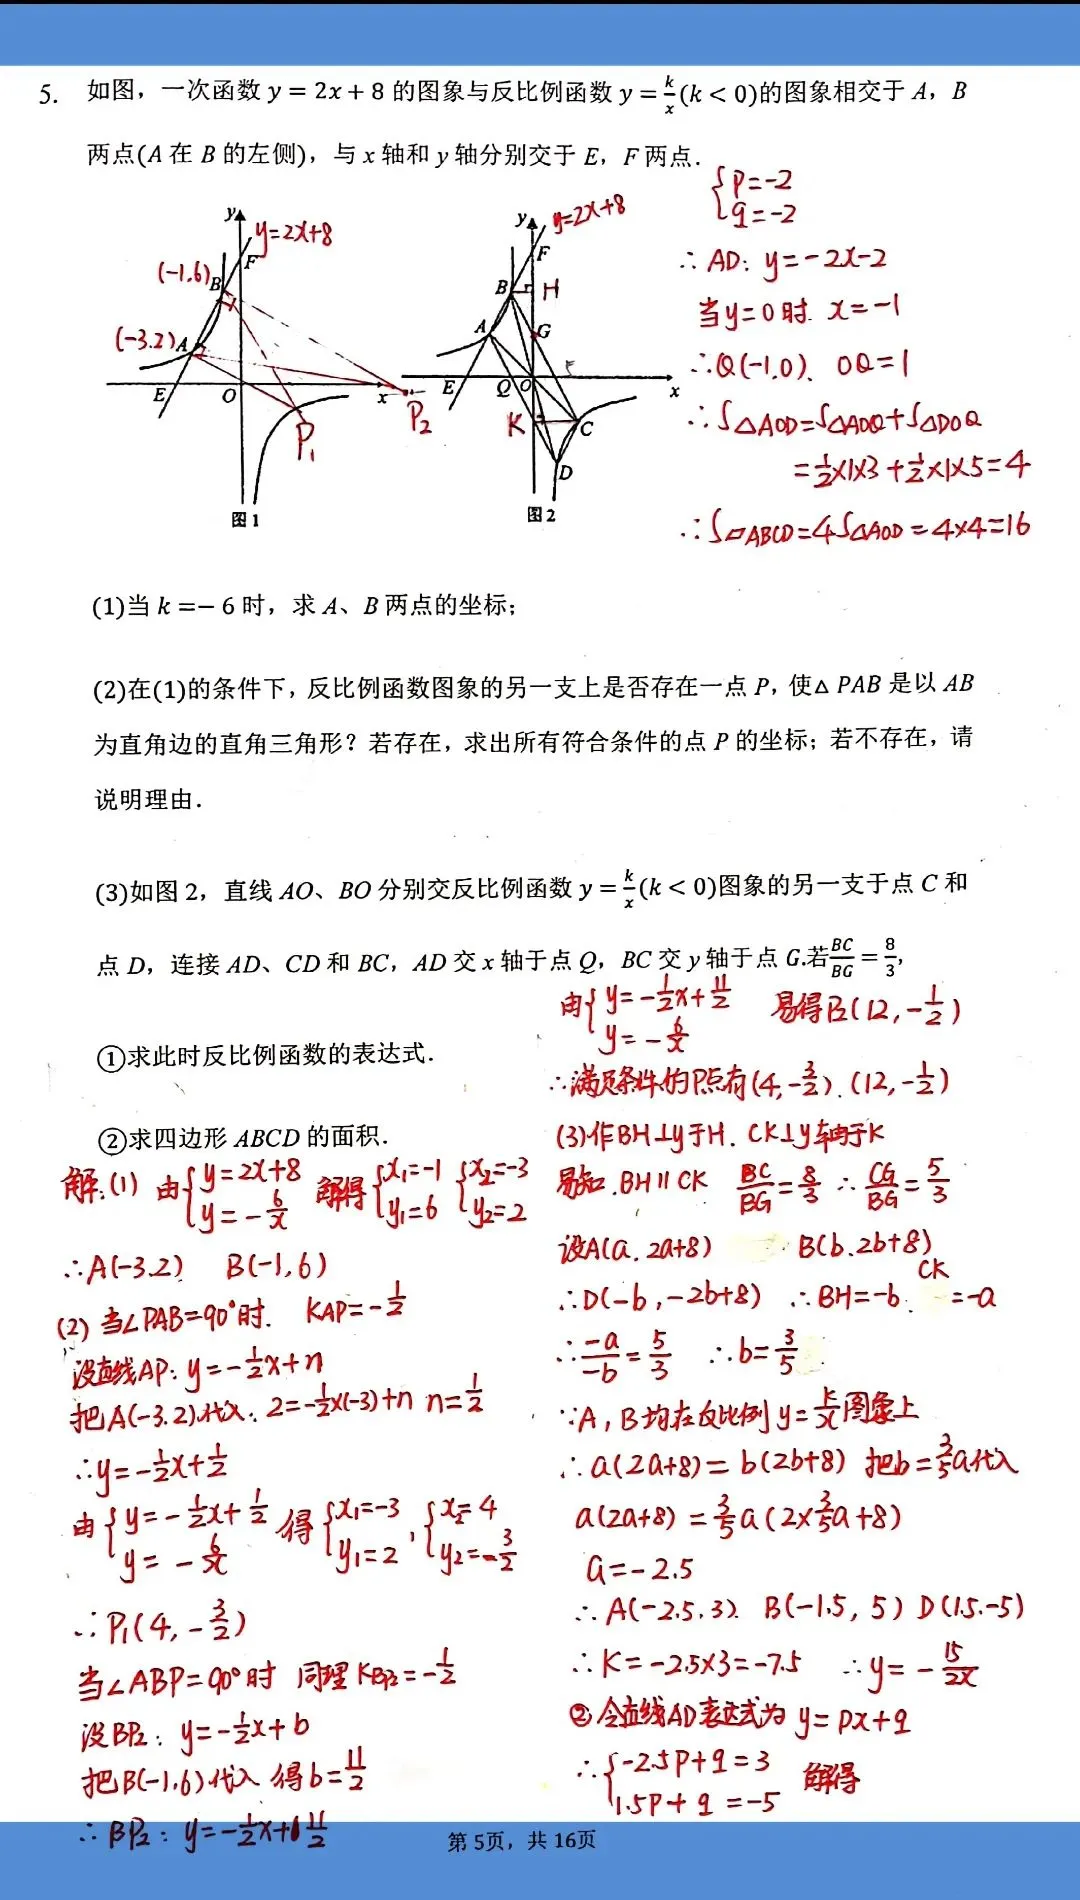 5. 如图，一次函数 y = 2x + 8 的图象与反比例函数 y = k/x (k < 0)的图象相交于 A，B
两点(A 在 B 的左侧)，与 x 轴和 y 轴分别交于 E，F 两点．
{p=-2
q=-2
∴AD: y=-2x-2
当y=0时. x=-1
∴Q(-1.0). OQ=1
∴S△AOD=S△AOQ+S△DOQ
=1/2×1×3+1/2×1×5=4
∴S▱ABCD=4S△AOD=4×4=16
y
y=2x+8
F
(-1.6)
B
(-3.2)
A
E
O
x
P1
P2
图 1
y
y=2x+8
F
B
H
A
G
E
Q
O
x
K
C
D
图 2
(1)当 k =− 6 时，求 A、B 两点的坐标；
(2)在(1)的条件下，反比例函数图象的另一支上是否存在一点 P，使△ PAB 是以 AB
为直角边的直角三角形？若存在，求出所有符合条件的点 P 的坐标；若不存在，请
说明理由．
(3)如图 2，直线 AO、BO 分别交反比例函数 y = k/x (k < 0)图象的另一支于点 C 和
点 D，连接 AD、CD 和 BC，AD 交 x 轴于点 Q，BC 交 y 轴于点 G.若BC/BG = 8/3，
①求此时反比例函数的表达式．
②求四边形 ABCD 的面积．
解:(1) 由{y=2x+8
y=-6/x 解得{x1=-1
y1=6 {x2=-3
y2=2
∴A(-3.2) B(-1,6)
(2) 当∠PAB=90°时. KAP=-1/2
设直线AP: y=-1/2x+n
把A(-3.2)代入: 2=-1/2×(-3)+n n=1/2
∴y=-1/2x+1/2
由{y=-1/2x+1/2
y=-6/x 得{x1=-3
y1=2 , {x2=4
y2=-3/2
∴P1(4,-3/2)
当∠ABP=90°时 同理KBP2=-1/2
设BP2: y=-1/2x+b
把B(-1,6)代入 得b=11/2
∴BP2: y=-1/2x+11/2
由{y=-1/2x+11/2
y=-6/x 易得P2(12,-1/2)
∴满足条件的P点有(4,-3/2).(12,-1/2)
(3)作BH⊥y于H. CK⊥y轴于K
易知.BH∥CK BC/BG=8/3 ∴CG/BG=5/3
设A(a.2a+8) B(b.2b+8)
∴D(-b,-2b+8) ∴BH=-b. CK=-a
∴-a/-b=5/3 ∴b=3/5
∵A,B均在反比例y=k/x图象上
∴a(2a+8)=b(2b+8) 把b=3/5a代入
a(2a+8)=3/5a(2×3/5a+8)
a=-2.5
∴A(-2.5.3). B(-1.5,5) D(1.5.-5)
∴K=-2.5×3=-7.5 ∴y=-15/2x
②令直线AD表达式为 y=px+q
∴{-2.5p+q=3
1.5p+q=-5 解得
第 5页，共 16页